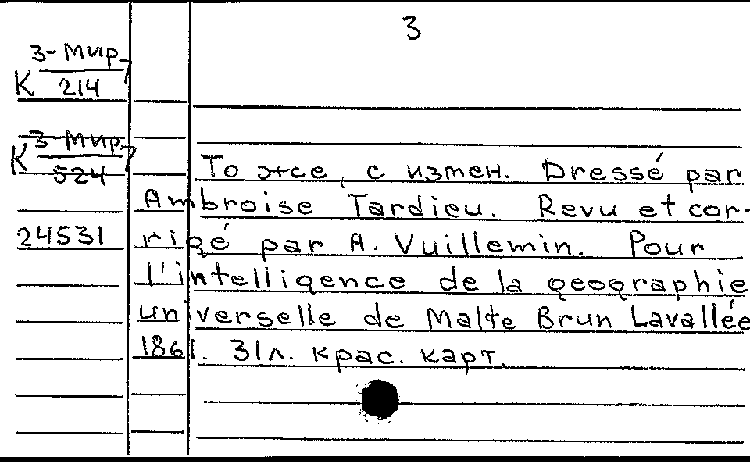 3
К 3-Мир. 7
214
К 3-Мир. 7
524
То же, с измен. Dressé par
Ambroise Tardieu. Revu et cor-
24531 rigé par A. Vuillemin. Pour
l'intelligence de la geographie
universelle de Malte Brun Lavallée
1861. 31л. крас. карт.